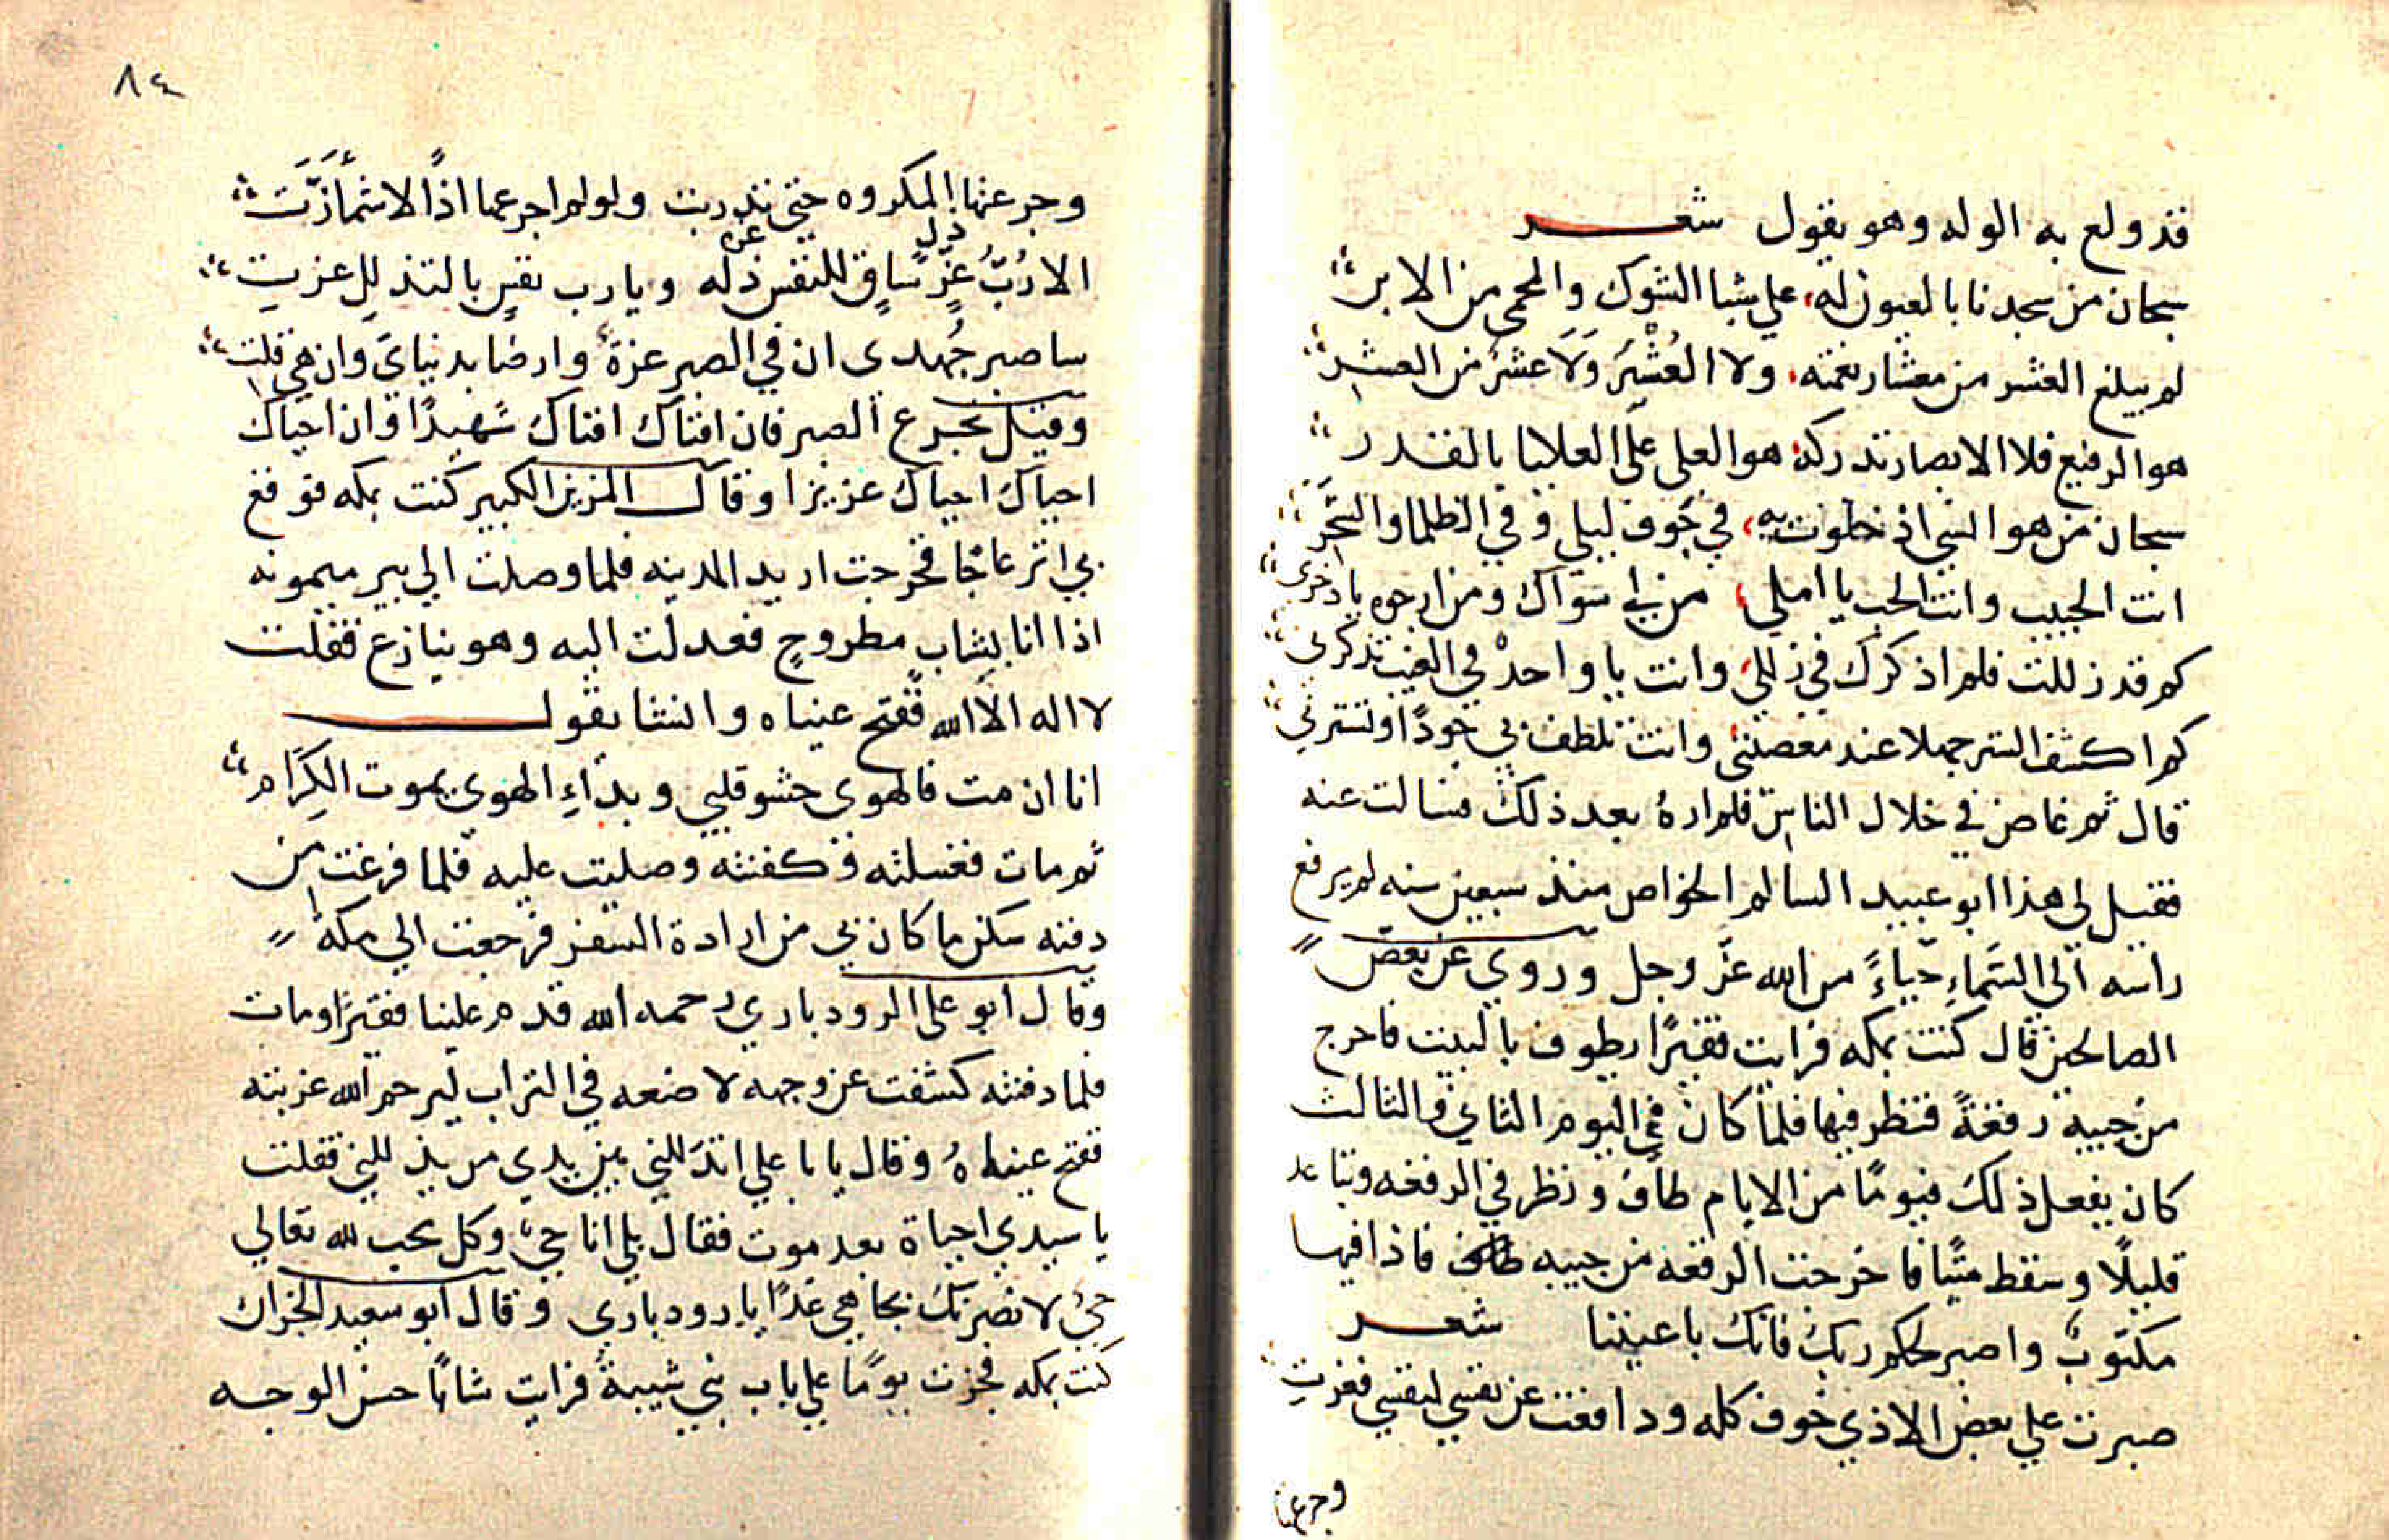 قد ولع به الوله وهو يقول شعر
سبحان من سجدنا بالعيون له على شبا الشوك والمحمى من الابر
لم يبلغ العشر من معشار نعمته ولا العُشَيْرَ وَلَا عشرٌ من العشر
هو الرفيع فلا الابصار تدركه هو العلي على العلايا بالقدر
سبحان من هو انسي اذ خلوت به في جوف ليلي وفي الظلما والسَّحَر
انت الحبيب وانت الحب يا املي من لي سواك ومن ارجوه يا ذخري
كم قد زللت فلم اذكرك في زللي وانت يا واحدٌ في الغيب تذكرني
كم اكشف الستر جهلا عند معصيتي وانت تلطف بي جودًا وتسترني
قال ثم غاص في خلال الناس فلم ارهُ بعد ذلك فسالت عنه
فقيل لي هذا ابو عبيد السالم الخواص منذ سبعين سنه لم يرفع
راسه الى السَّماءِ حياءً من الله عزّ وجل وروي عن بعض
الصالحين قال كنت بمكه فرايت فقيرًا يطوف بالبيت فاخرج
من جيبه رقعةً فنظر فيها فلما كان في اليوم الثاني والثالث
كان يفعل ذلك فيومًا من الايام طاف ونظر في الرقعه وتباعد
قليلًا وسقط ميتًا فاخرجت الرقعه من جيبه فاذا فيها
مكتوبٌ واصبر لحكم ربك فانك باعيننا شعر
صبرت على بعض الاذي خوف كله ودافعت عن نفسي لنفسي فعزتِ
وجرعتها
٨٤
وجرعتها المكروه حتى تدربت ولو لم اجرعها اذًا لاشمأَزَّتَ
ذل عزه
الا رُبَّ عِزٍّ ساق للنفس ذله ويا رب نفسٍ بالتذللِ عزتِ
ساصبر جُهدي ان في الصبر عزة وارضا بدنيايَ وان هي قلت
وقيل تجرع الصبر فان افتاك افتاك شهيدًا وان احياك
احياك احياك عزيزا وقال المزين الكبير كنت بمكه فوقع
بي انزعاجًا فخرجت اريد المدينه فلما وصلت الي بير ميمونه
اذا انا بشابٍ مطروحٍ فعدلت اليه وهو ينازع فقلت
لا اله الا الله ففتح عيناه وانشا يقول
انا ان مت فالهوى حشو قلبي وبدَاءِ الهوى يموت الكِرَام
ثم مات فغسلته وكفنته وصليت عليه فلما فرغت من
دفنه سكن ما كان بي من ارادة السفر فرجعت الي مكة
وقال ابو على الرودباري رحمه الله قدم علينا فقيرًا ومات
فلما دفنته كشفت عن وجهه لاضعه في التراب ليرحم الله غربته
ففتح عيناهُ وقال يا با علي اتذَللني بين يدي من يذللني فقلت
يا سيدي احياة بعد موت فقال بلي انا حيٌ وكل محب لله تعالي
حيٌ لانصرنك بجاهي غدًا يا رودباري وقال ابو سعيد الخراك
كنت بمكه فجزت يومًا علي باب بني شيبة فرايت شابًا حسن الوجه